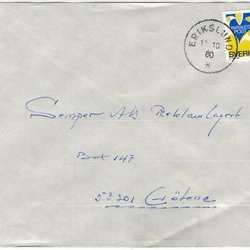 ERIKSLUND
17 10
80
SVERIGE
Semper AB
Box 147
53301 Götene